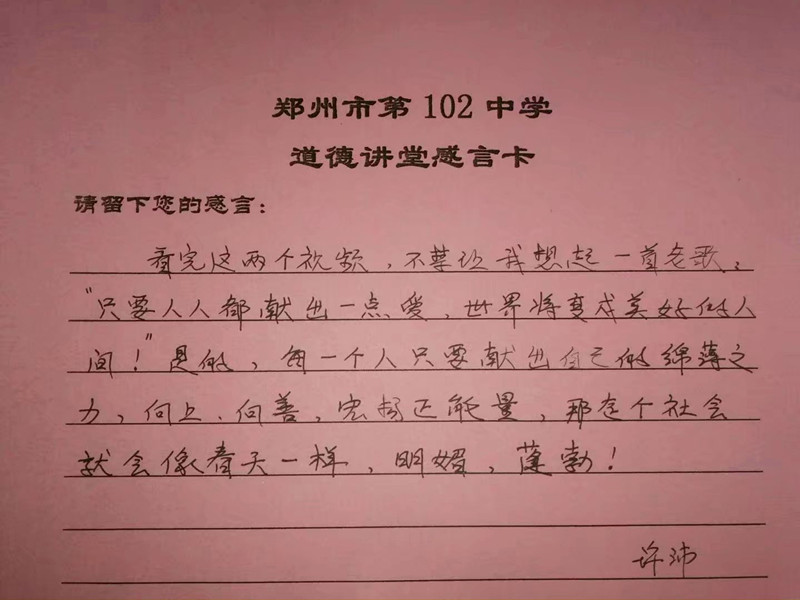 郑州市第102中学
道德讲堂感言卡
请留下您的感言：
看完这两个视频，不禁让我想起一首老歌：
“只要人人都献出一点爱，世界将变成美好的人
间！”是的，每一个人只要献出自己的绵薄之
力，向上、向善，宏扬正能量，那这个社会
就会像春天一样，明媚，蓬勃！
许沛